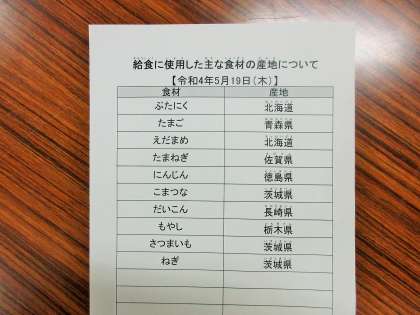 給食に使用した主な食材の産地について
【令和4年5月19日(木)】
食材 産地
ぶたにく 北海道
たまご 青森県
えだまめ 北海道
たまねぎ 佐賀県
にんじん 徳島県
こまつな 茨城県
だいこん 長崎県
もやし 栃木県
さつまいも 茨城県
ねぎ 茨城県